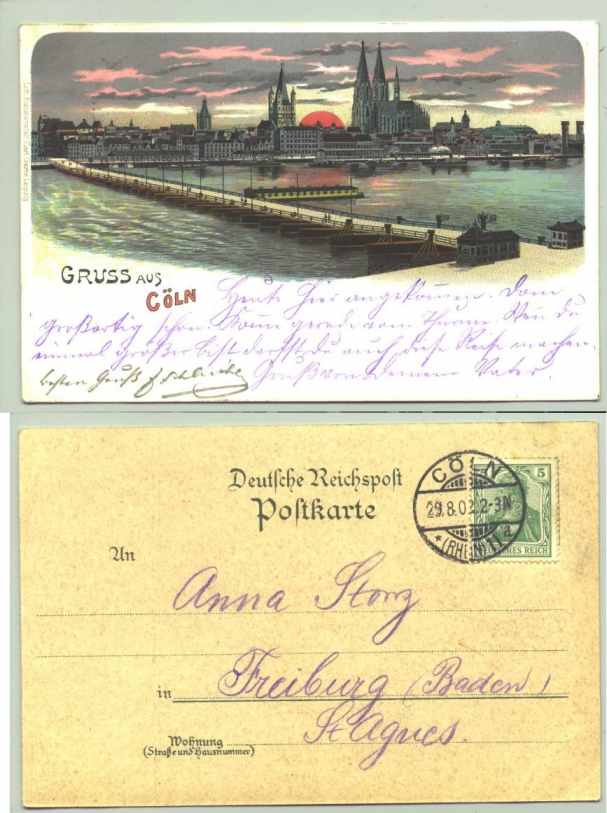 GRUSS AUS
CÖLN
Heute hier angekommen. Dom
großartig schön. Komme gerade vom Thurm. Wenn du
einmal größer bist darfst Du auch diese Reise machen.
besten Gruß
Gruß von deinem Vater.
Deutsche Reichspost
Postkarte
CÖLN
29.8.02. 2-3N
*(RHEIN) 11a
5
DEUTSCHES REICH
An
Anna Storz
in Freiburg (Baden)
St Agnes.
Wohnung
(Straße und Hausnummer)